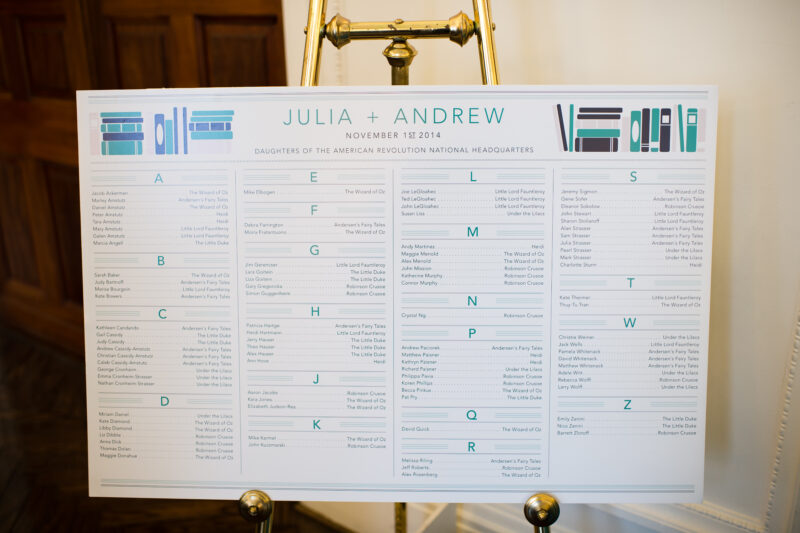 JULIA + ANDREW
NOVEMBER 1ST 2014
DAUGHTERS OF THE AMERICAN REVOLUTION NATIONAL HEADQUARTERS
A
Jacob Ackerman The Wizard of Oz
Marley Amstutz Andersen's Fairy Tales
Daniel Amstutz The Wizard of Oz
Peter Amstutz Heidi
Tara Amstutz Heidi
Mary Amstutz Little Lord Fauntleroy
Galen Amstutz Little Lord Fauntleroy
Marcia Angell The Little Duke
B
Sarah Baker The Wizard of Oz
Judy Battinoff Andersen's Fairy Tales
Marise Bourgoin Little Lord Fauntleroy
Kate Bowers Andersen's Fairy Tales
C
Kathleen Candarita Andersen's Fairy Tales
Gail Cassidy The Little Duke
Judy Cassidy The Little Duke
Andrew Cassidy-Amstutz Andersen's Fairy Tales
Christian Cassidy-Amstutz Andersen's Fairy Tales
Caleb Cassidy-Amstutz Andersen's Fairy Tales
George Cronheim Under the Lilacs
Emma Cronheim-Strasser Under the Lilacs
Nathan Cronheim-Strasser Under the Lilacs
D
Miriam Daniel Under the Lilacs
Kate Diamond The Wizard of Oz
Libby Diamond The Wizard of Oz
Liz Dibble Robinson Crusoe
Anna Dick Robinson Crusoe
Thomas Dolan Robinson Crusoe
Maggie Donahue The Wizard of Oz
E
Mike Elbogen The Wizard of Oz
F
Debra Farrington Andersen's Fairy Tales
Moira Fratantuono The Wizard of Oz
G
Jim Gerenser Little Lord Fauntleroy
Lara Goitein The Little Duke
Liza Goitein The Little Duke
Gary Gregoricka Robinson Crusoe
Simon Guggenheim Robinson Crusoe
H
Patricia Hartge Andersen's Fairy Tales
Heidi Hartmann Little Lord Fauntleroy
Jerry Hauser The Little Duke
Theo Hauser The Little Duke
Alex Hauser The Little Duke
Ann Hove Heidi
J
Aaron Jacobs Robinson Crusoe
Kara Jones The Wizard of Oz
Elizabeth Judson-Rea The Wizard of Oz
K
Mike Karmel The Wizard of Oz
John Kuczmarski Robinson Crusoe
L
Joe LeGloahec Little Lord Fauntleroy
Ted LeGloahec Little Lord Fauntleroy
John LeGloahec Little Lord Fauntleroy
Susan Liss Under the Lilacs
M
Andy Martinez Heidi
Maggie Menold The Wizard of Oz
Alex Menold The Wizard of Oz
John Mission Robinson Crusoe
Katherine Murphy Robinson Crusoe
Connor Murphy Robinson Crusoe
N
Crystal Ng Robinson Crusoe
P
Andrew Paciorek Andersen's Fairy Tales
Matthew Palsner Heidi
Kathryn Palsner Heidi
Richard Palsner Under the Lilacs
Philippa Pavia Robinson Crusoe
Karen Phillips Robinson Crusoe
Becca Pinkus The Wizard of Oz
Pat Pry The Little Duke
Q
David Quick The Wizard of Oz
R
Melissa Riling Andersen's Fairy Tales
Jeff Roberts Robinson Crusoe
Alex Rosenberg The Wizard of Oz
S
Jeremy Sigmon The Wizard of Oz
Gene Sofer Andersen's Fairy Tales
Eleanor Sokolow Robinson Crusoe
John Stewart Little Lord Fauntleroy
Sharon Stoliaroff Little Lord Fauntleroy
Alan Strasser Andersen's Fairy Tales
Sam Strasser Andersen's Fairy Tales
Julia Strasser Andersen's Fairy Tales
Pearl Strasser Under the Lilacs
Mark Strasser Under the Lilacs
Charlotte Sturm Heidi
T
Kate Thermer Little Lord Fauntleroy
Thuy-Tu Tran The Wizard of Oz
W
Christie Weiner Under the Lilacs
Jack Wells Little Lord Fauntleroy
Pamela Whitenack Andersen's Fairy Tales
David Whitenack Andersen's Fairy Tales
Matthew Whitenack Andersen's Fairy Tales
Adele Witt Under the Lilacs
Rebecca Wolff Robinson Crusoe
Larry Wolff Under the Lilacs
Z
Emily Zanini The Little Duke
Nico Zanini The Little Duke
Barrett Zlotoff Robinson Crusoe